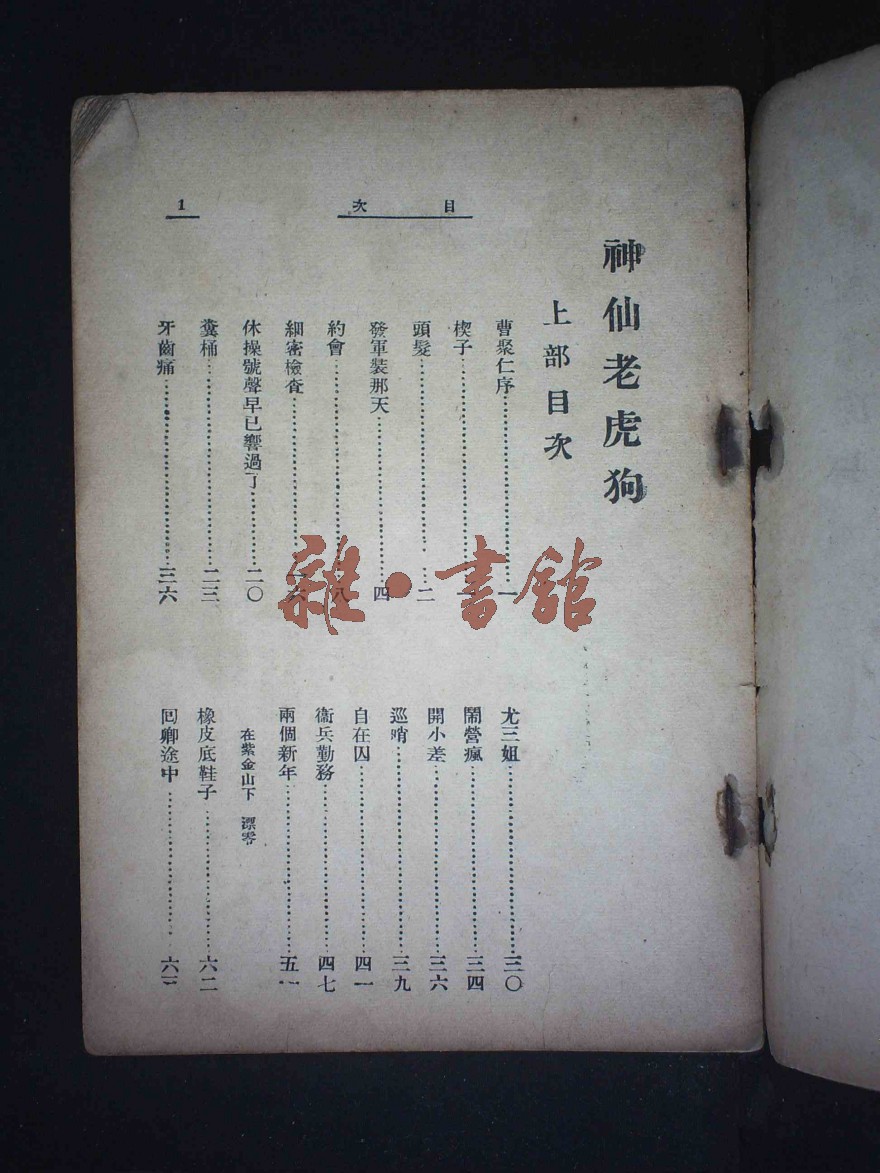 目次
1
神仙老虎狗
上部目次
曹聚仁序……一
楔子……一
頭髮……二
發軍裝那天……四
約會……八
細密檢查……
休操號聲早已響過了……二〇
糞桶……二三
牙齒痛……二六
尤三姐……三〇
鬧營瘋……三四
開小差……三六
巡哨……三九
自在囚……四一
衞兵勤務……四七
兩個新年……五一
在紫金山下 漂零
橡皮底鞋子……六二
回鄉途中……六
雜·書館